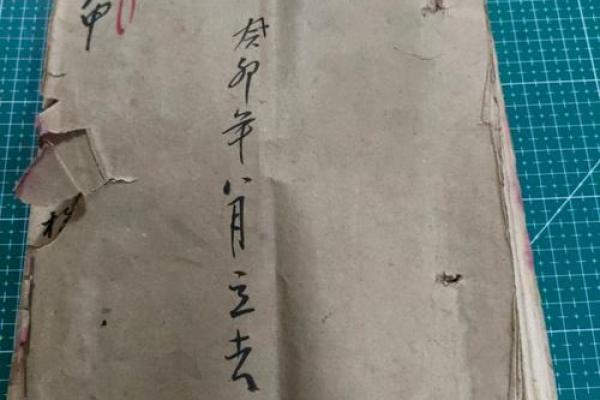 癸卯年八月立
申